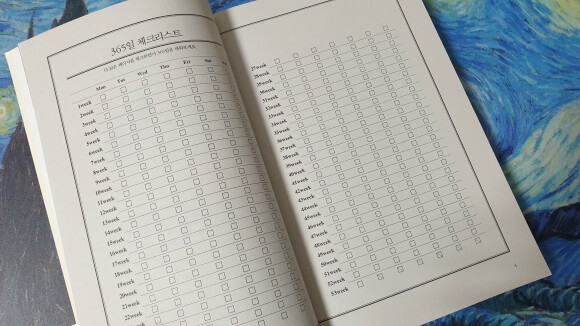 365일 체크리스트
Mon Tue Wed Thu Fri Sat
1week
2week
3week
4week
5week
6week
7week
8week
9week
10week
11week
12week
13week
14week
15week
16week
17week
18week
19week
20week
21week
22week
27week
28week
29week
30week
31week
32week
33week
34week
35week
36week
37week
38week
39week
40week
41week
42week
43week
44week
45week
46week
47week
48week
49week
50week
51week
52week
53week